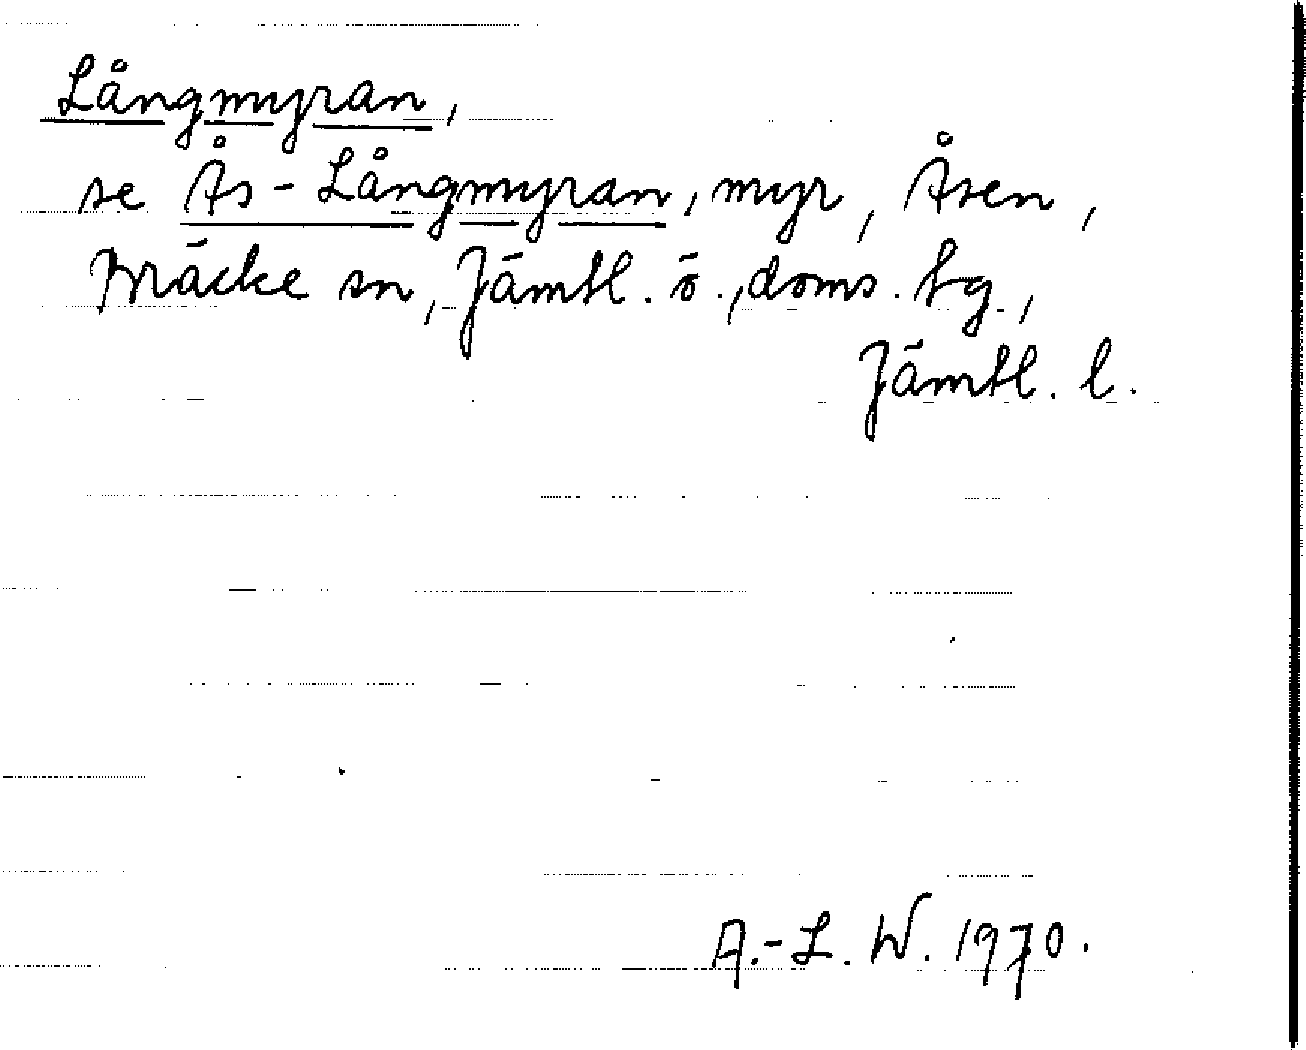 Långmyran,
se Ås-Långmyran, myr, Åsen,
Bräcke sn, Jämtl. ö., doms. tg.,
Jämtl. l.
A.-L. W. 1970.